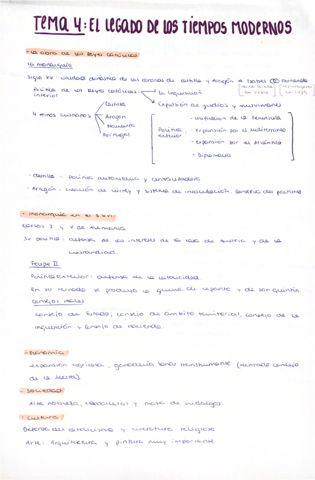 TEMA 4: EL LEGADO DE LOS TIEMPOS MODERNOS
- La obra de los Reyes Católicos
La monarquía
Siglo XV: unidad dinástica de las coronas de Castilla y Aragón → Isabel I Fernando
Política de los Reyes Católicos interior
La Inquisición
Expulsión de judíos y musulmanes
4 reinos cristianos
Castilla
Aragón
Navarra
Portugal
Política exterior
- Unificación de la Península
- Expansión por el Mediterráneo
- Expansión por el Atlántico
- Diplomacia
- Castilla → Política autoritaria y centralizadora
- Aragón → creación de virrey y sistema de insaculación
- Monarquía en el S.XVI
Carlos I y V de Alemania
Su política: defensa de los intereses de la casa de Austria y de la
cristiandad.
Felipe II
Política exterior: defensa de la catolicidad.
En su reinado se produjo la guerra de Lepanto y de San Quintín.
Consejos reales
Consejo de Estado, consejo de ámbito territorial, consejo de la
inquisición y consejo de Hacienda.
- Economía
expansión agrícola, ganadería lanar transhumante (Honrado Concejo
de la Mesta).
- Sociedad
Alta nobleza, caballeros y masa de hidalgos.
- Cultura
Defensa del catolicismo y literatura religiosa
Arte: Arquitectura y pintura muy importante